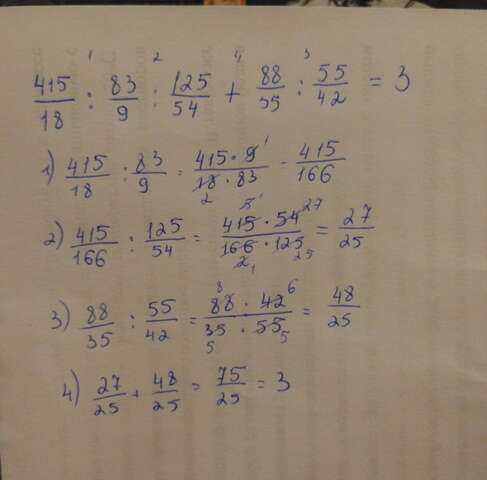 1 2 4 3
415/18 : 83/9 : 125/54 + 88/35 : 55/42 = 3
1) 415/18 : 83/9 = 415 · 9 1/18 2 · 83 = 415/166
2) 415/166 : 125/54 = 5 415 · 54 27/166 2 1 · 125 25 = 27/25
3) 88/35 : 55/42 = 8 88 · 42 6/35 5 · 55 5 = 48/25
4) 27/25 + 48/25 = 75/25 = 3